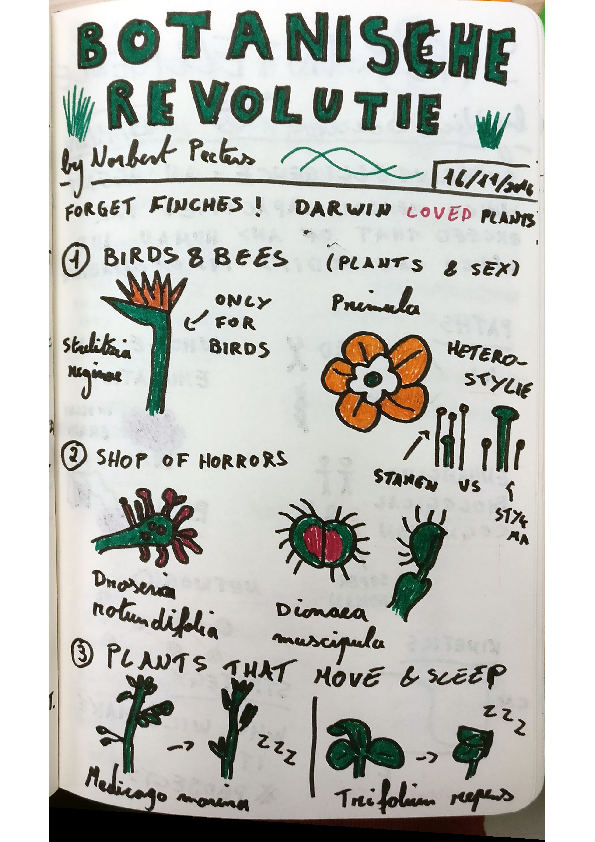 BOTANISCHE
REVOLUTIE
by Norbert Peeters
16/11/2016
FORGET FINCHES! DARWIN LOVED PLANTS
① BIRDS & BEES (PLANTS & SEX)
ONLY
FOR
BIRDS
Strelitzia
reginae
Primula
HETERO-
STYLIE
STAMEN VS
STYG
MA
② SHOP OF HORRORS
Drosera
rotundifolia
Dionaea
muscipula
③ PLANTS THAT MOVE & SLEEP
ZZZ
Medicago marina
ZZZ
Trifolium repens